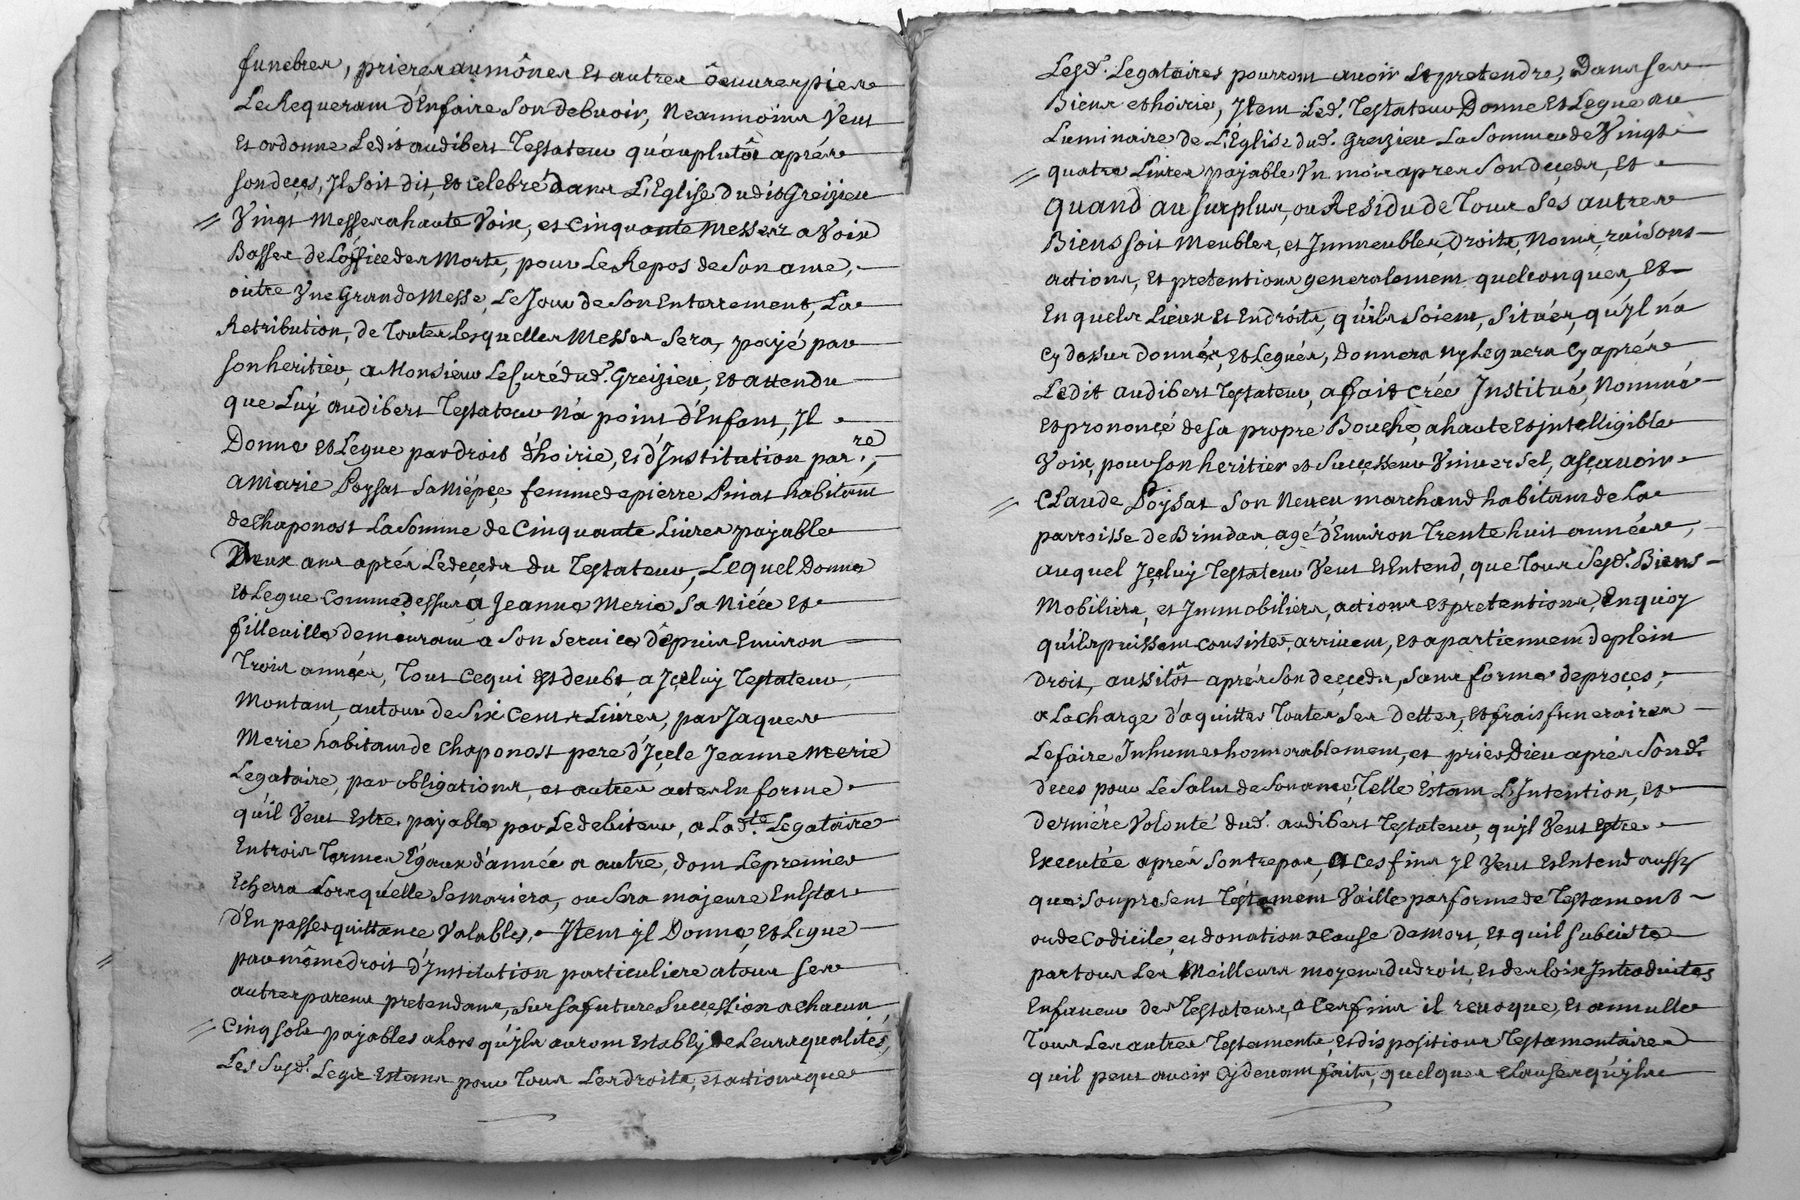 funebres, prieres aumônes et autres ôeuures pies
Le Requerant d'En faire son debuoir, Neanmoins Veut
Et ordonne Ledit audibert Testateur qu'au plutôt aprés
son deçes, Jl soit dit, et celebré dans L'Eglise dudit Greizieu
Vingt Messes a haute Voix, et cinquante Messes a Voix
Basse de L'office des Morts, pour Le Repos de Son ame,
oûtre Vne Grande Messe, Le Jour de Son Enterrement, La
Retribution, de Toutes Lesquelles Messes Sera, payé par
son heritier, a Monsieur Le Curé dud. Greizieu, et attendu
que Luy audibert Testateur N'a point d'Enfant, Jl
Donne et Legue par droit d'hoirie, et d'Institution par.re
a Marie Poysat Sa Niépçe femme de pierre Pinat habitant
de Chaponost La Somme de Cinquante Liures payable
Deux ans aprés Le deçeds du Testateur, Lequel Donne
et Legue comme dessus a Jeanne Merie Sa Niéce et
filleuille demeurant a Son Seruice dépuis Enuiron
Trois années, Tout ce qui Est deubt a Jçeluy Testateur
Montant, autour de Six Cents Liures, par Jaques
Merie habitant de Chaponost pere d'Jçele Jeanne Merie
Legataire, par obligations, et autres actes En forme
qu'il Veut Estre payable par Le debiteur, a Lad.te Legataire
En trois Termes Egaux d'année a autre, dont Le premier
Echerra Lorsqu'elle Se mariera, ou Sera majeure En Estat
d'En passer quittance Valable, Jtem jl Donne, et Legue
par même droit d'Institution particuliere a tous ses
autres parens pretendans, Sur Sa future Succession a chacun
Cinq sols payables alors qu'jls auront Establi de Leurs qualités,
Les Susd. Legs Estans pour Tous Les droits, et actions que
Lesd. Legataires pourront auoir Et pretendre, Dans Ses
Biens et hoirie, Jtem Led. Testateur Donne Et Legue au
Luminaire de L'Église dud. Greizieu La Somme de Vingt
quatre Liures payable Vn mois apres Son deçeds, Et
quand au surplus, ou Residu de Tous Ses autres
Biens soit Meubles, et Jmmeubles, Droits, Noms, raisons
actions, Et pretentions generalement quelconques, Et
En quels Lieux Et Endroits, qu'ils Soient, Situés, qu'jl n'a
cy dessus donnés, et Legués, donnera ny Leguera Cy aprés
Ledit audibert Testateur, a fait crée Jnstitué, Nommé
et prononçé de sa propre Bouche, a haute et jntelligible
Voix, pour son heritier et Suççesseur Vniuersel, asçauoir
Claude Poysat Son Neueu marchand habitant de La
parroisse de Brindas, agé d'Enuiron Trente huit années,
auquel Jçeluy Testateur Veut Et Entend, que Tous Sesd. Biens
Mobiliers, et Jmmobiliers, actions et pretentions, En quoy
qu'ils puissent consister, arriuent, et apartiennent de plein
droit, aussitôt aprés Son deçeds, sans forme de proçes,
a La charge d'aquitter Toutes Ses Dettes, et frais funeraires
Le faire Jnhumer honnorablement, et prier Dieu aprés Sond.
deces pour Le Salut de Son ame, Telle Estant L'Jntention, et
derniére Volonté dud. audibert Testateur, qu'jl Veut Estre
Executée aprés Son trepas, a ces fins jl Veut Et Entend aussy
que Son present Testament Vaille par forme de Testament
ou de Codicile, et donation a Cause de mort, Et quil Subciste
par tous Les Meilleurs moyens du droit, Et des loix Introduites
En faueur des Testateurs, a Ces fins il reuoque, Et annulle
Tous Les autres Testaments, Et dispositions Testamentaires
qu'il peut auoir Cy deuant faits, quelques clauses qu'jls